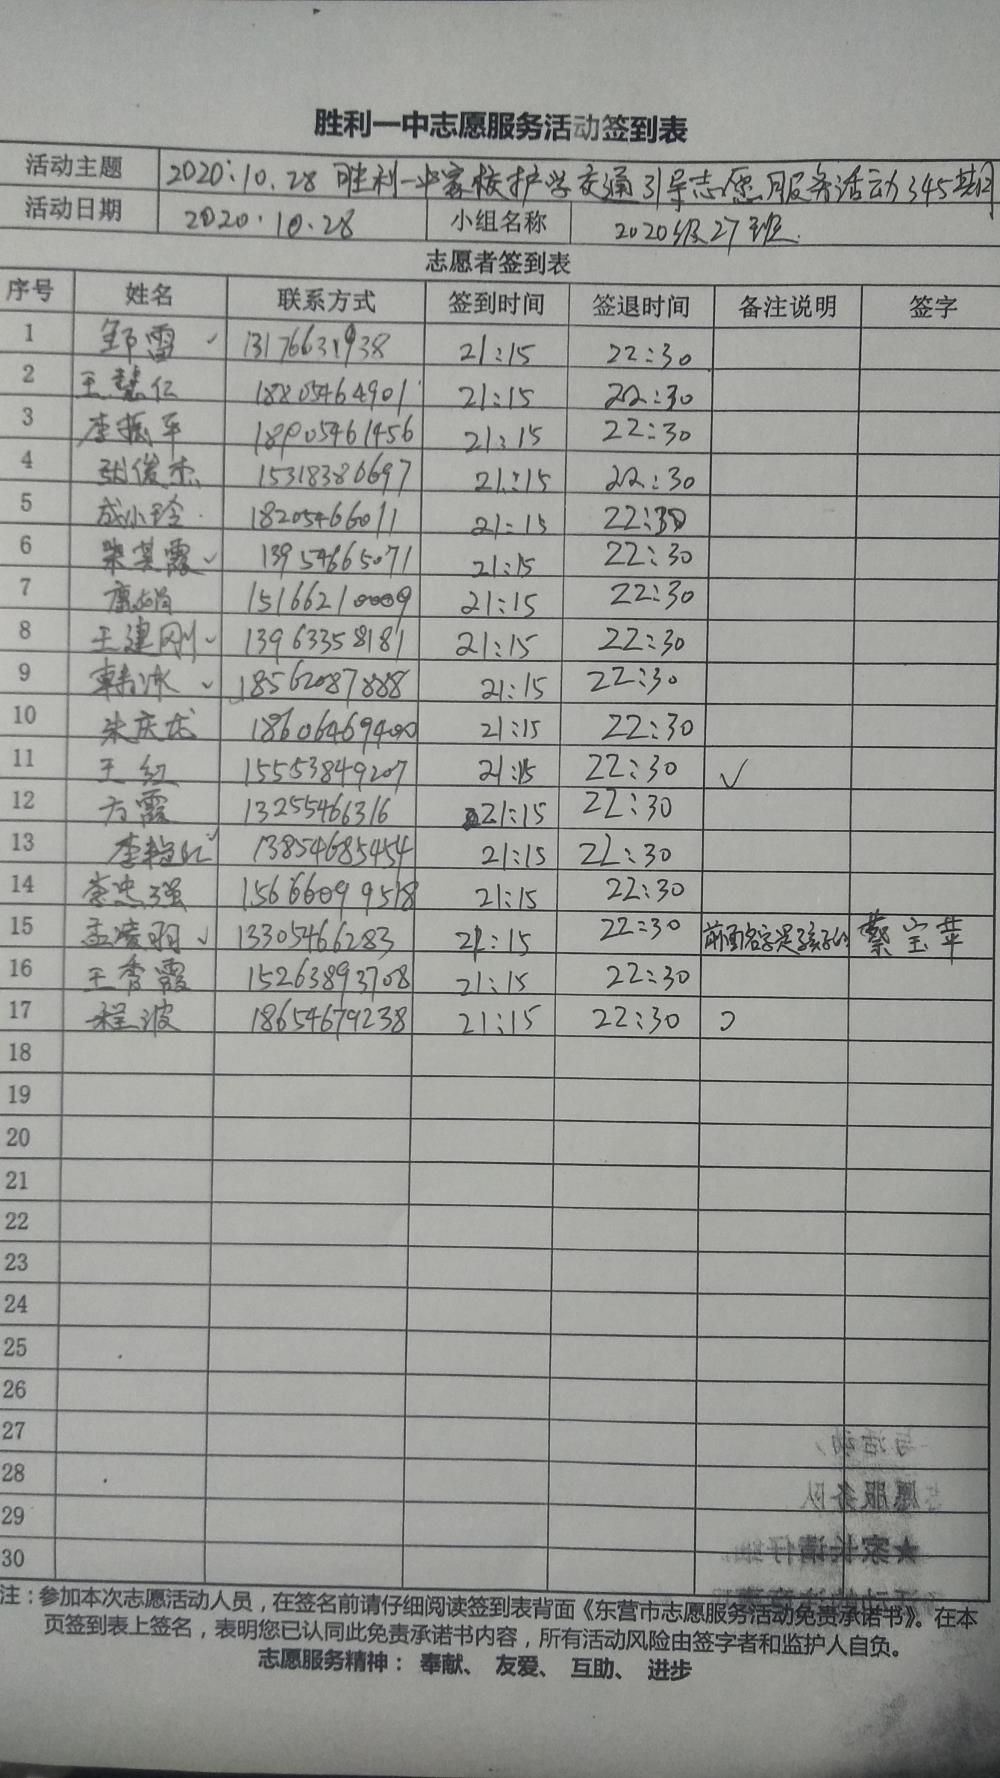 胜利一中志愿服务活动签到表
活动主题 2020.10.28 胜利一中家校护学交通引导志愿服务活动345期
活动日期 2020.10.28 小组名称 2020级27班
志愿者签到表
序号 姓名 联系方式 签到时间 签退时间 备注说明 签字
1 邹雷 ✓ 13176631938 21:15 22:30
2 王慧仁 18805464901 21:15 22:30
3 李振平 18905461456 21:15 22:30
4 张俊杰 15318386697 21:15 22:30
5 成小玲 18205466011 21:15 22:30
6 柴其霞 ✓ 13954665071 21:15 22:30
7 15166210009 21:15 22:30
8 王建刚 ✓ 13963358181 21:15 22:30
9 韩冰 ✓ 18562087888 21:15 22:30
10 朱庆龙 18606469400 21:15 22:30
11 王红 15553849207 21:15 22:30 ✓
12 方霞 13255466316 21:15 22:30
13 李 13854685454 21:15 22:30
14 李忠强 15666099518 21:15 22:30
15 孟凌羽 ✓ 13305466283 21:15 22:30 前面名字是孩子的 蔡宝苹
16 王秀霞 15263893708 21:15 22:30
17 程波 18654679238 21:15 22:30
18
19
20
21
22
23
24
25
26
27
28
29
30
注：参加本次志愿活动人员，在签名前请仔细阅读签到表背面《东营市志愿服务活动免责承诺书》。在本
页签到表上签名，表明您已认同此免责承诺书内容，所有活动风险由签字者和监护人自负。
志愿服务精神： 奉献、 友爱、 互助、 进步